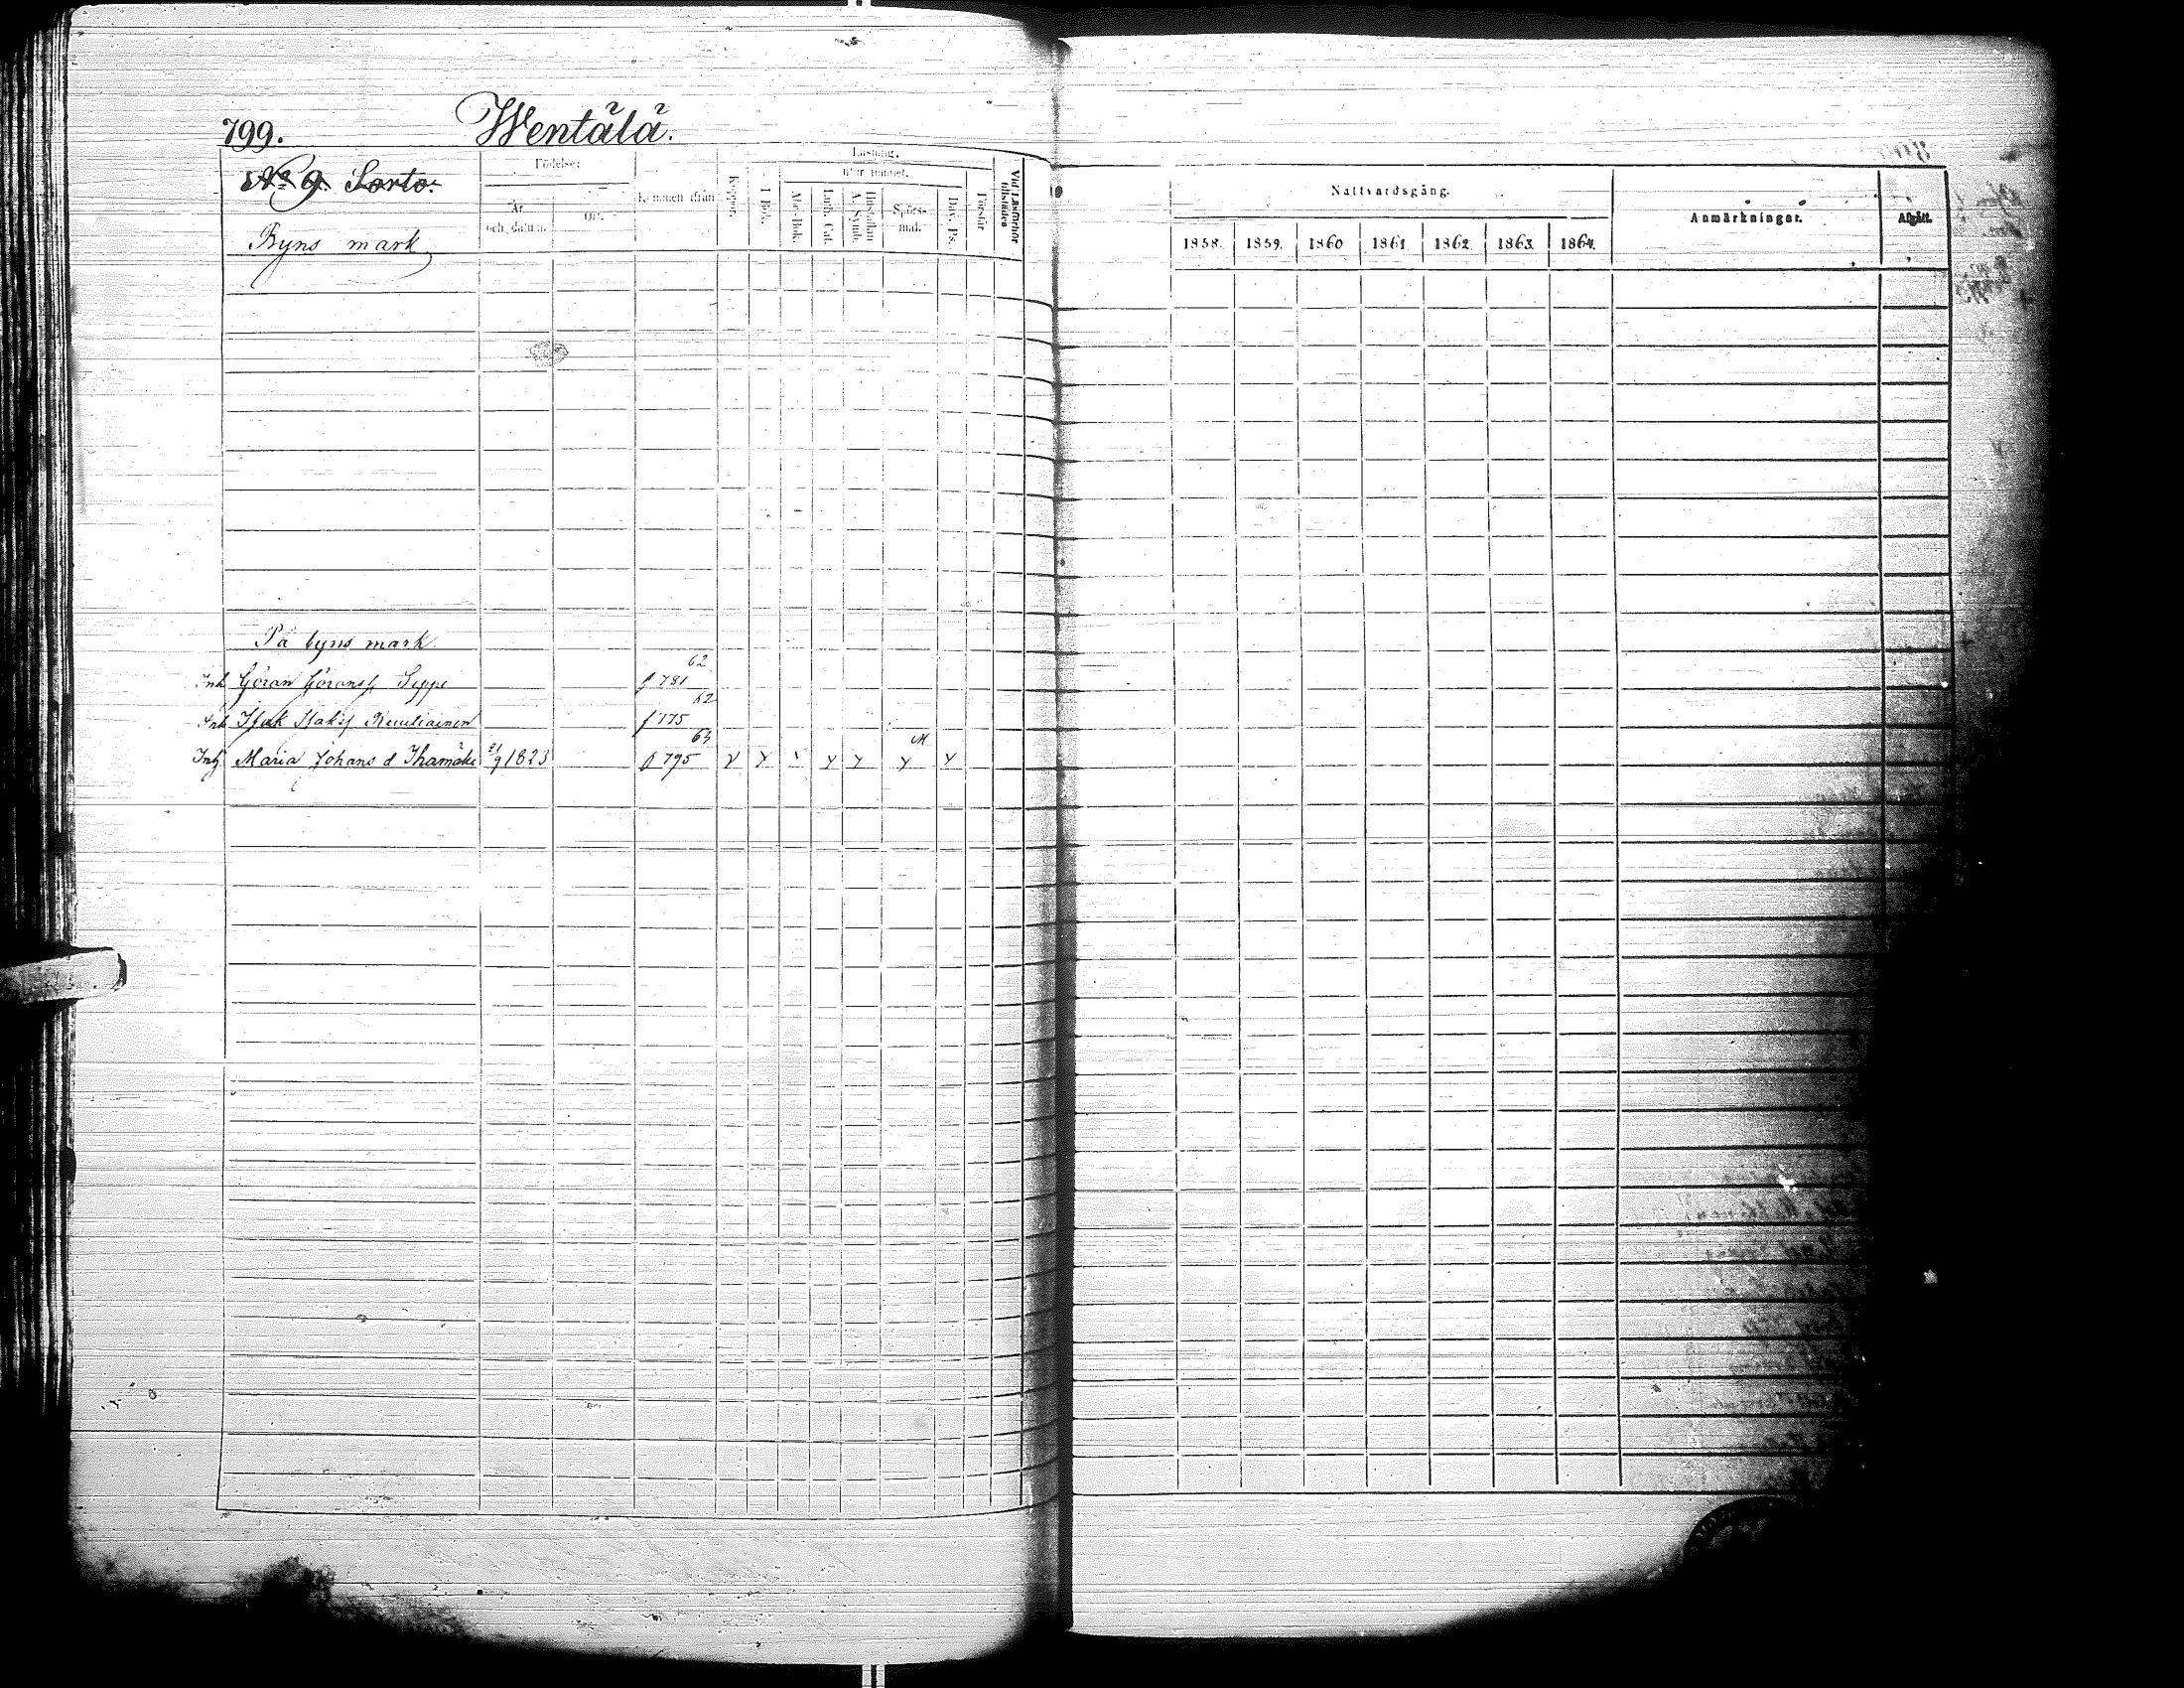 799. Wentälä.
No 9. Sorto.
Byns mark
Födelse:
År och datum.
Ort.
Kommen ifrån
Koppor.
Läsning.
I Bok.
utur minnet.
Abc-Bok.
Luth. Cat.
Hustaflan A. Symb.
Spörs-mål.
Dav. Ps.
Förstår
Vid Läsförhör tillstädes
Nattvardsgång.
1858. 1859. 1860 1861 1862 1863. 1864.
Anmärkningar.
Afgått.
På byns mark
62
Inh Göran Göranss. Seppe f 781
62
Inh Isak Isakss. f 775
63
Inh Maria Johans d 21/9 1823 f 795